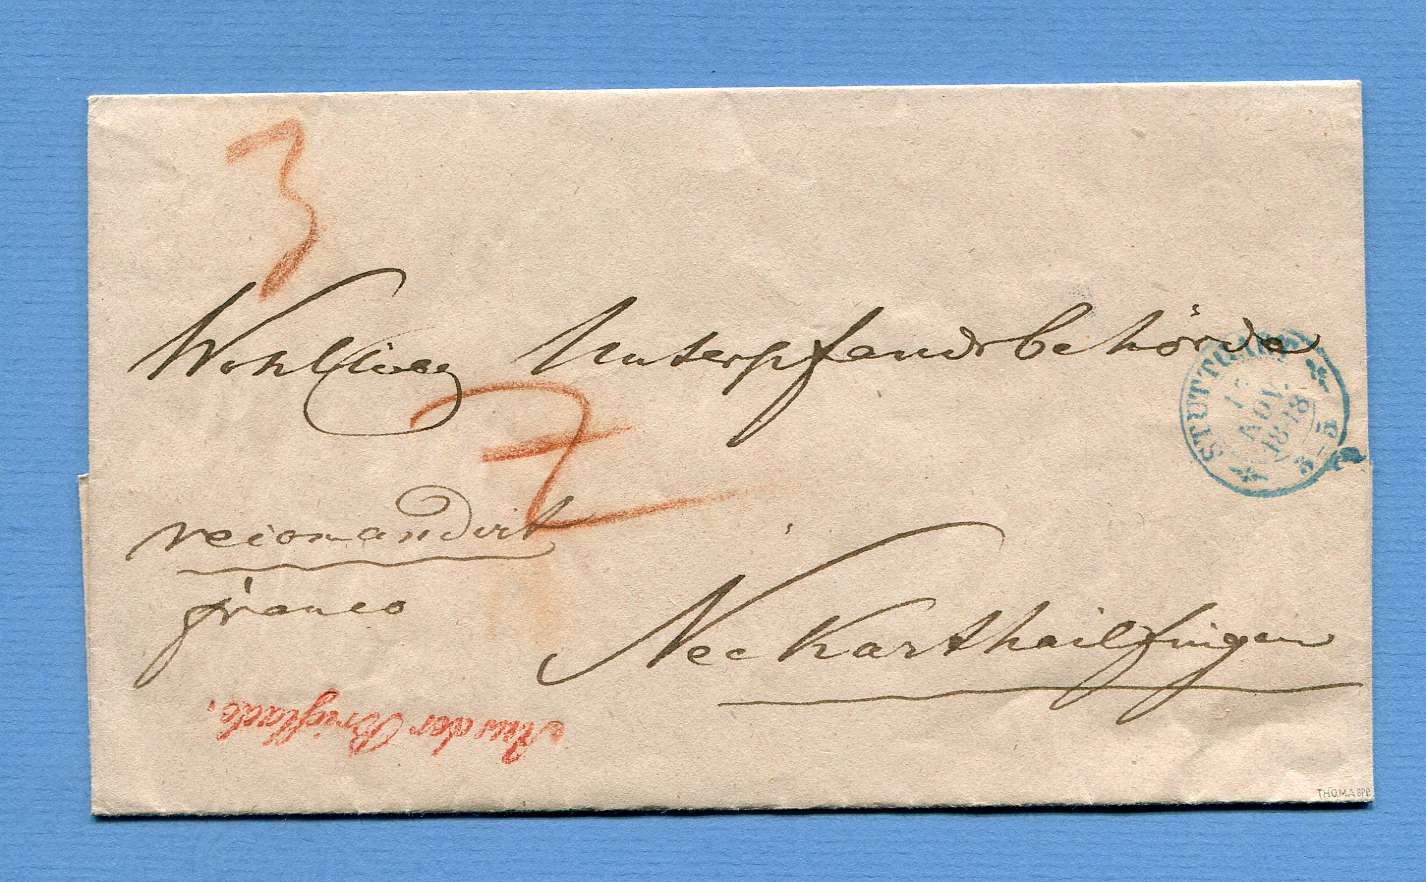 3
Wohllöbl Unterpfandsbehörde
7
STUTTGART
NOV.
3-5
recomandirt
franco
Neckarthailfingen
Aus der Brieflade.
THOMA BPP